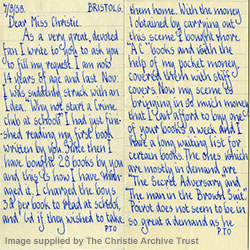 7/8/38. BRISTOL 5.
Dear Miss Christie.
As a very great, devoted
fan I write to you to ask you
to fill my request I am now
14 years of age and last Nov:
I was suddenly struck with an
Idea. "Why not start a Crime
club at School" I had just fin-
shed reading my first book
written by you. Since then I
have bought 28 books by you
and this is how I have man-
aged it. I charged the boys
3d per book to read at school,
and if they wished to take
P.T.O
them home. With the money
I obtained by carrying out
this scheme I bought more
"A.C" books and with the
help of my pocket money,
covered them with stiff
covers. Now my scheme is
bringing in so much money
that I can afford to buy one
of your books a week and I
have a long waiting list for
certain books. The ones which
are mostly in demand are
"The Secret Adversary" and
"The man in the Brown Suit".
Poirot does not seem to be in
so great a demand as he
P.T.O
Image supplied by The Christie Archive Trust